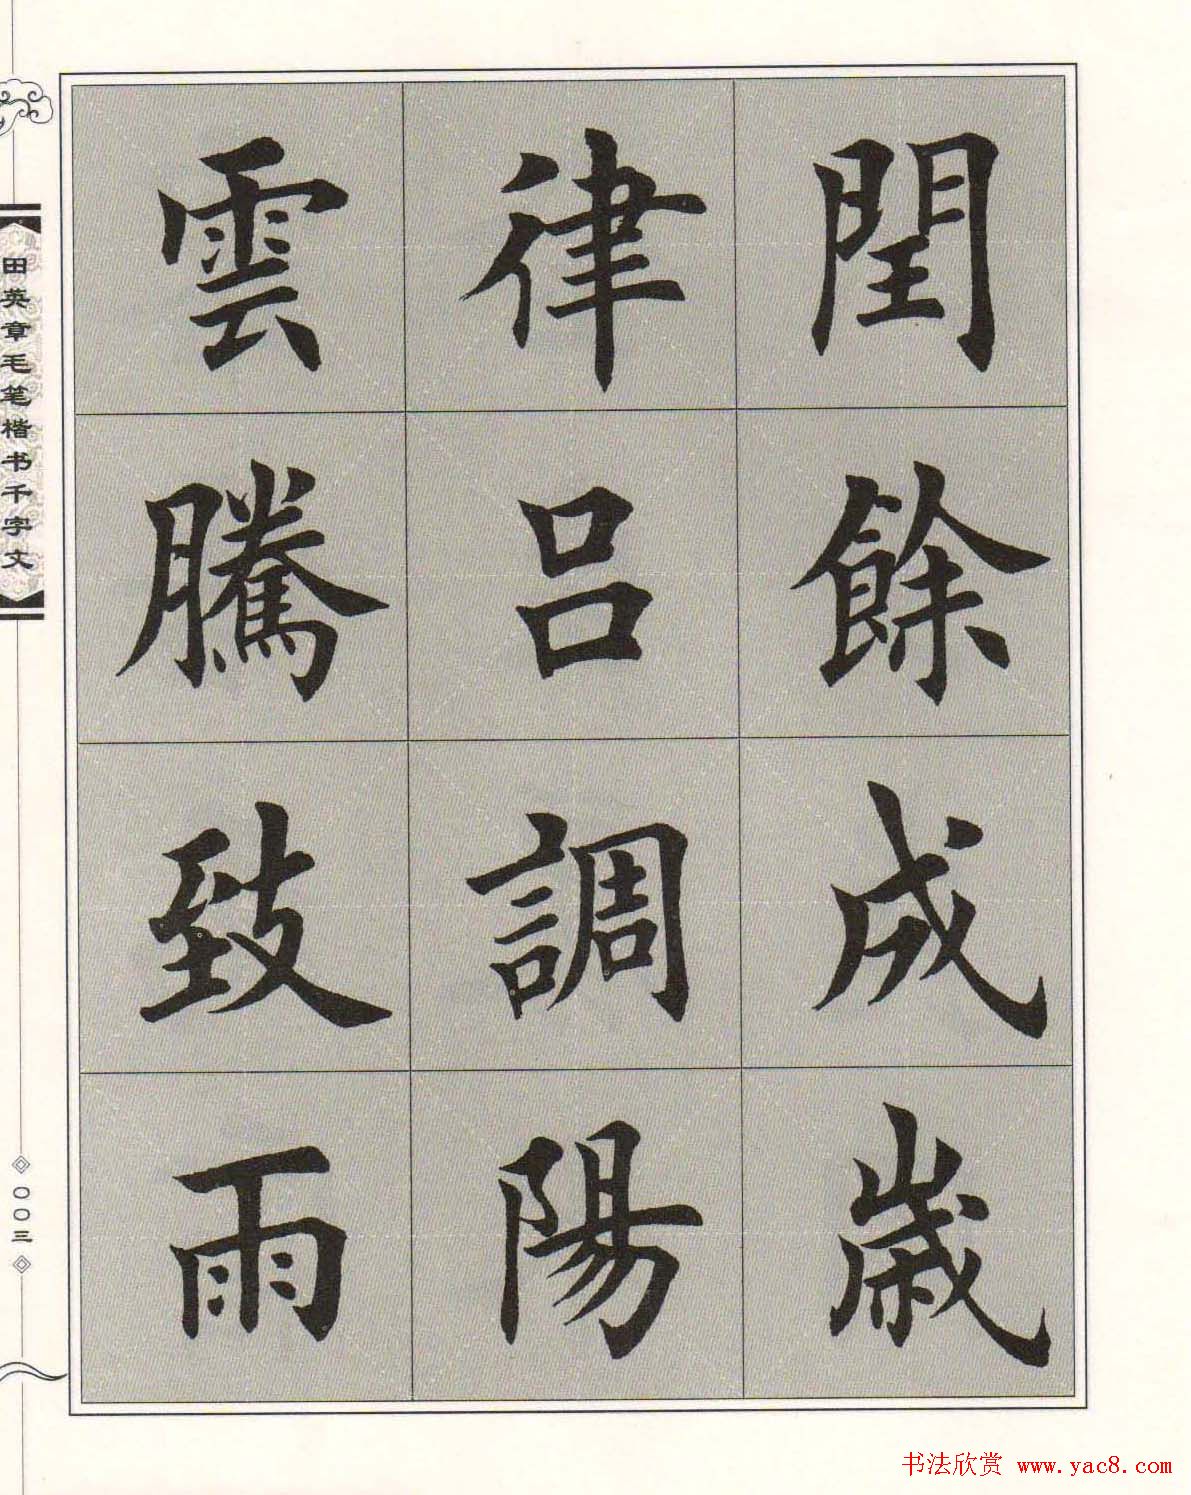 閏餘成歲
律吕調陽
雲騰致雨
田英章毛笔楷书千字文
〇〇三
书法欣赏 www.yac8.com